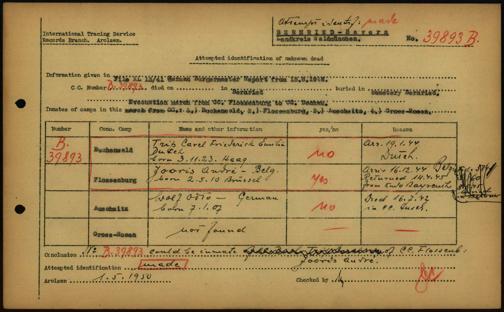 Attempt identif. made
International Tracing Service
Records Branch. Arolsen.
BERNRIED-Bavern
Landkreis Weilmünchen.
No. 39893 B.
Attempted identification of unknown dead
Information given in File XL 12/41 German Burgermaster Report from
C.C. Number B.39893 died on in Bernried buried in Cemetery Bernried.
Evacuation march from CC. Flossenburg to CC. Dachau.
Inmates of camps in this march from CC. 1.) Buchenwald, 2.) Flossenburg, 3.) Auschwitz, 4.) Gross-Rosen.
Number Conc. Camp Name and other information yes/no Reason
B. 39893
Buchenwald Trip Carel Friederich
Dutch
born 3.11.23. Haag
no
Arr. 19.1.44
Flossenburg Jooris André - Belg.
born 2.5.10 Brüssel
yes
Arriv 16.12.44
Returned 14.4.45
from Kdo Bayreuth
Auschwitz Wolf Otto - German
born 7.1.07
no
Died 16.2.42
in CC.
Gross-Rosen not found
Conclusion: Nr B-39893 could be inmate of CC Flossenb.
Jooris André.
Attempted identification made
Arolsen 1.5.1950 Checked by